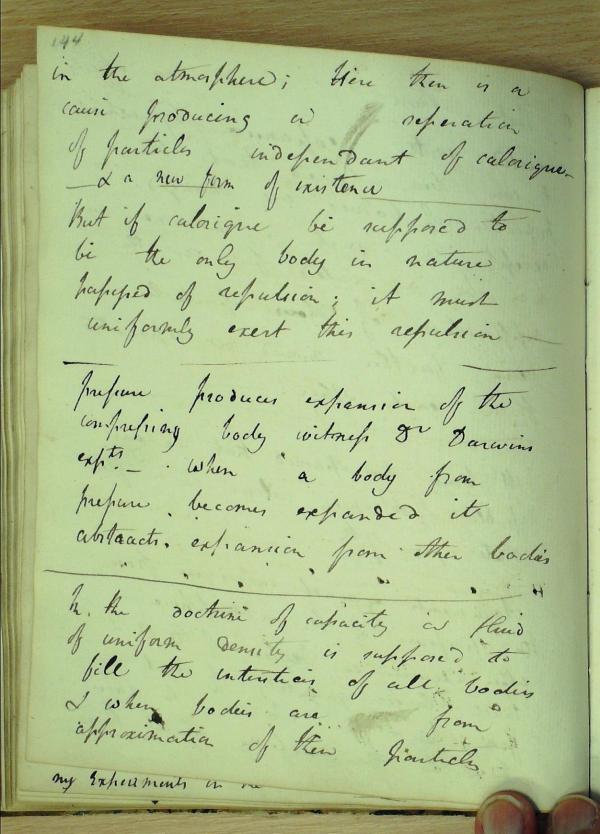 144
in the atmosphere; Here then is a
cause producing a seperation
of particles independant of calorique
— & a new form of existence
But if calorique be supposed to
be the only body in nature
possessed of repulsion; it must
uniformly exert this repulsion —
pressure produces expansion of the
compressing body witness Dr Darwins
expts. — when a body from
pressure becomes expanded it
abstracts expansion from other bodies
In the doctrine of capacity a fluid
of uniform density is supposed to
fill the interstices of all bodies
& when bodies are from
approximation of their particles
my Experiments on